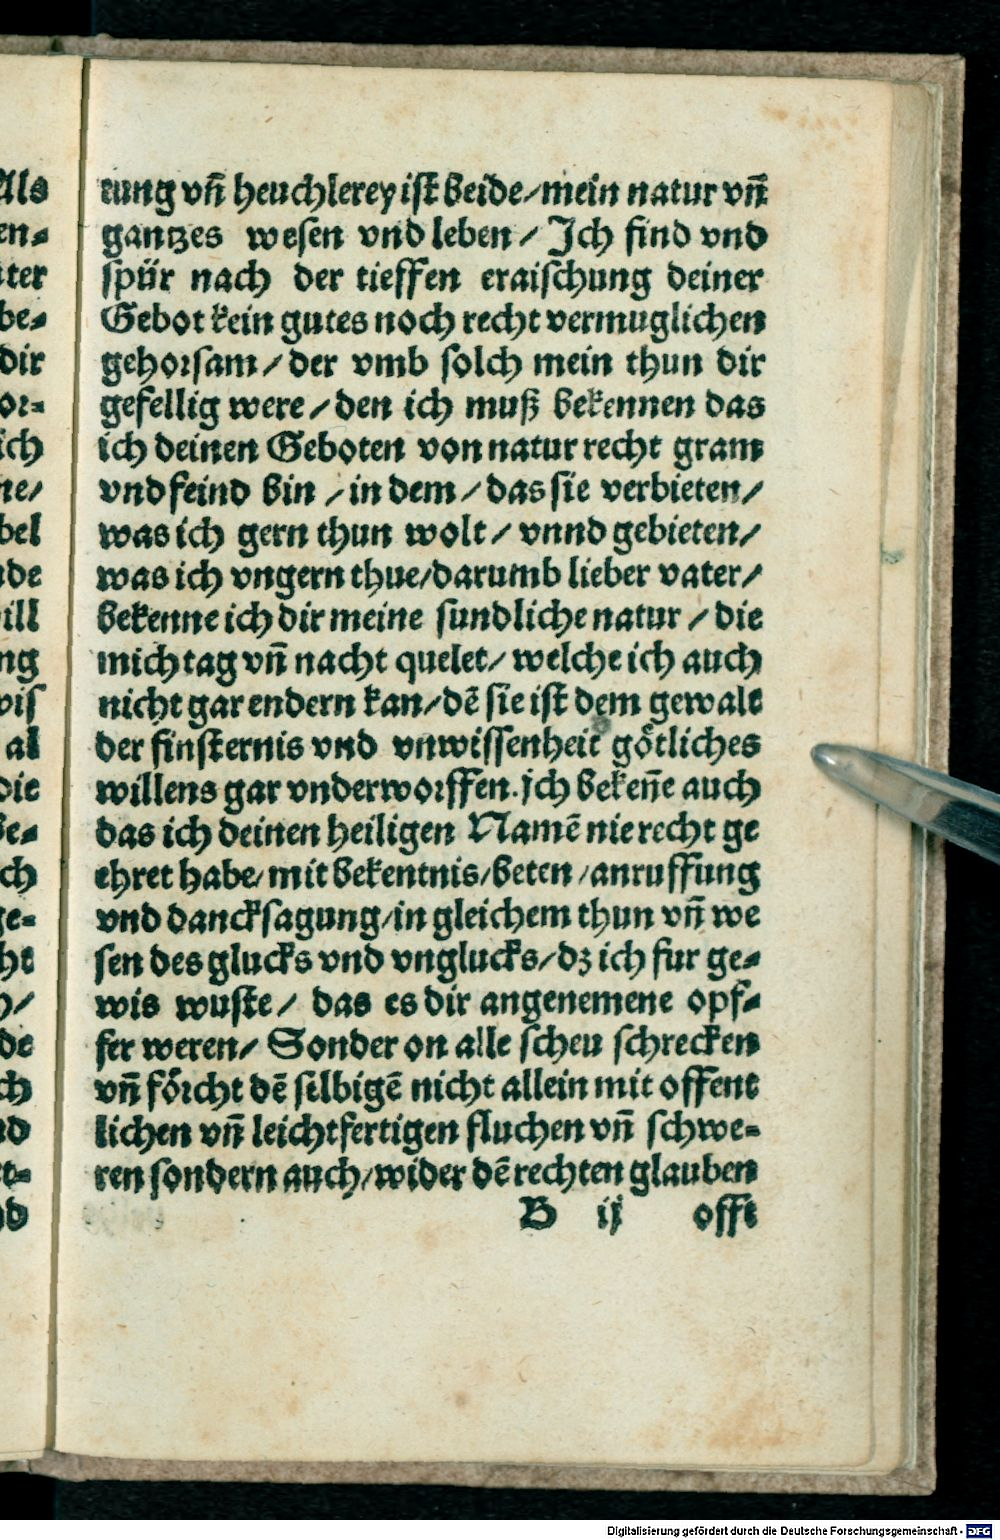 tung vn̄ heuchlerey ist beide/mein natur vn̄
gantzes wesen vnd leben/ Ich find vnd
spür nach der tieffen eraischung deiner
Gebot kein gutes noch recht vermuglichen
gehorsam/der vmb solch mein thun dir
gefellig were/den ich muß bekennen das
ich deinen Geboten von natur recht gram
vnd feind bin/in dem/das sie verbieten/
was ich gern thun wolt/ vnnd gebieten/
was ich vngern thue/darumb lieber vater/
bekenne ich dir meine sundliche natur/die
mich tag vn̄ nacht quelet/welche ich auch
nicht gar endern kan/dē sie ist dem gewalt
der finsternis vnd vnwissenheit götliches
willens gar vnderworffen. ich bekeñe auch
das ich deinen heiligen Namē nie recht ge
ehret habe/mit bekentnis/beten/anruffung
vnd dancksagung/in gleichem thun vn̄ we
sen des glucks vnd vnglucks/dz ich fur ge-
wis wuste/ das es dir angenemene opf-
fer weren/ Sonder on alle scheu schrecken
vn̄ förcht dē selbigē nicht allein mit offent
lichen vn̄ leichtfertigen fluchen vn̄ schwe-
ren sondern auch/wider dē rechten glauben
B ij offt
Als
en-
ter
be-
dir
or-
ich
ne/
bel
de
ill
ng
vis
al
die
be-
ch
ge-
ht
/
de
ch
d
t-
d
Digitalisierung gefördert durch die Deutsche Forschungsgemeinschaft - DFG